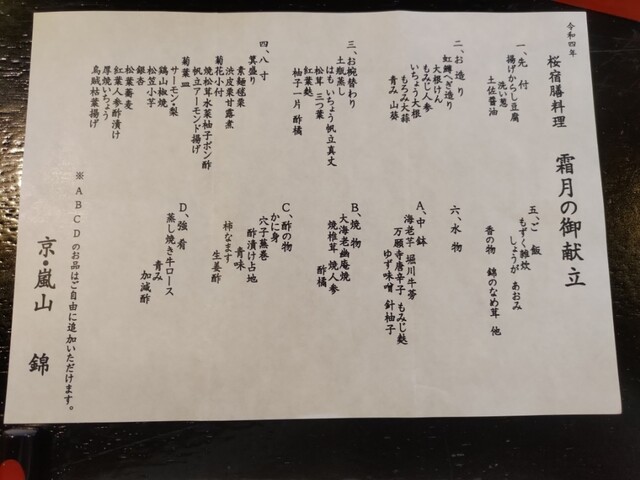 令和四年
桜宿膳料理　霜月の御献立
一、先 付
揚げからし豆腐
洗い葱
土佐醤油
二、お造り
紅鯛へぎ造り
大根けん
もみじ人参
いちょう大根
もろみ大蒜
青み 山葵
三、お椀替わり
土瓶蒸し
はも いちょう帆立真丈
松茸 三つ葉
紅葉麩
柚子一片 酢橘
四、八 寸
異盛り
素麺毬栗
渋皮栗甘露煮
菊花小付
焼松茸水菜柚子ポン酢
帆立アーモンド揚げ
菊葉皿
サーモン・梨
鶏山椒焼
松笠小芋
銀杏
松葉蕎麦
紅葉人参酢漬け
厚焼いちょう
烏賊枯葉揚げ
五、ご 飯
もずく雑炊
しょうが あおみ
香の物 錦のなめ茸 他
六、水 物
A、中 鉢
海老芋 堀川牛蒡
万願寺唐辛子 もみじ麩
ゆず味噌 針柚子
B、焼 物
大海老幽庵焼
焼椎茸 焼人参
酢橘
C、酢の物
かに身
穴子蕪巻
酢漬け占地
青味
柿なます
生姜酢
D、強 肴
蒸し焼き牛ロース
青み
加減酢
※ＡＢＣＤのお品はご自由に追加いただけます。
京・嵐山　錦